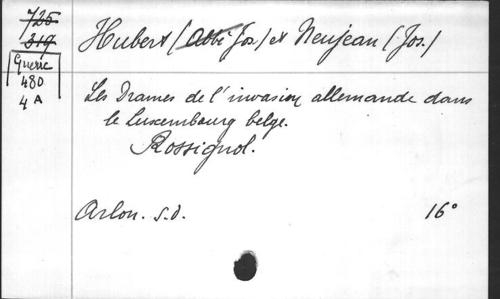 725
319
Guerre
480
4 A
Hubert (Abbé Jos.) et Neujean (Jos.)
Les Drames de l'invasion allemande dans
le Luxembourg belge.
Rossignol.
Arlon. s.d. 16°